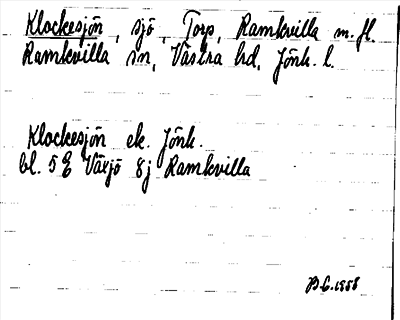 Klockesjön, sjö, Torp, Ramkvilla m.fl.
Ramkvilla sn, Västra hd, Jönk. l.
Klockesjön ek. Jönk.
bl. 5 E Växjö 8j Ramkvilla
B.E. 1958